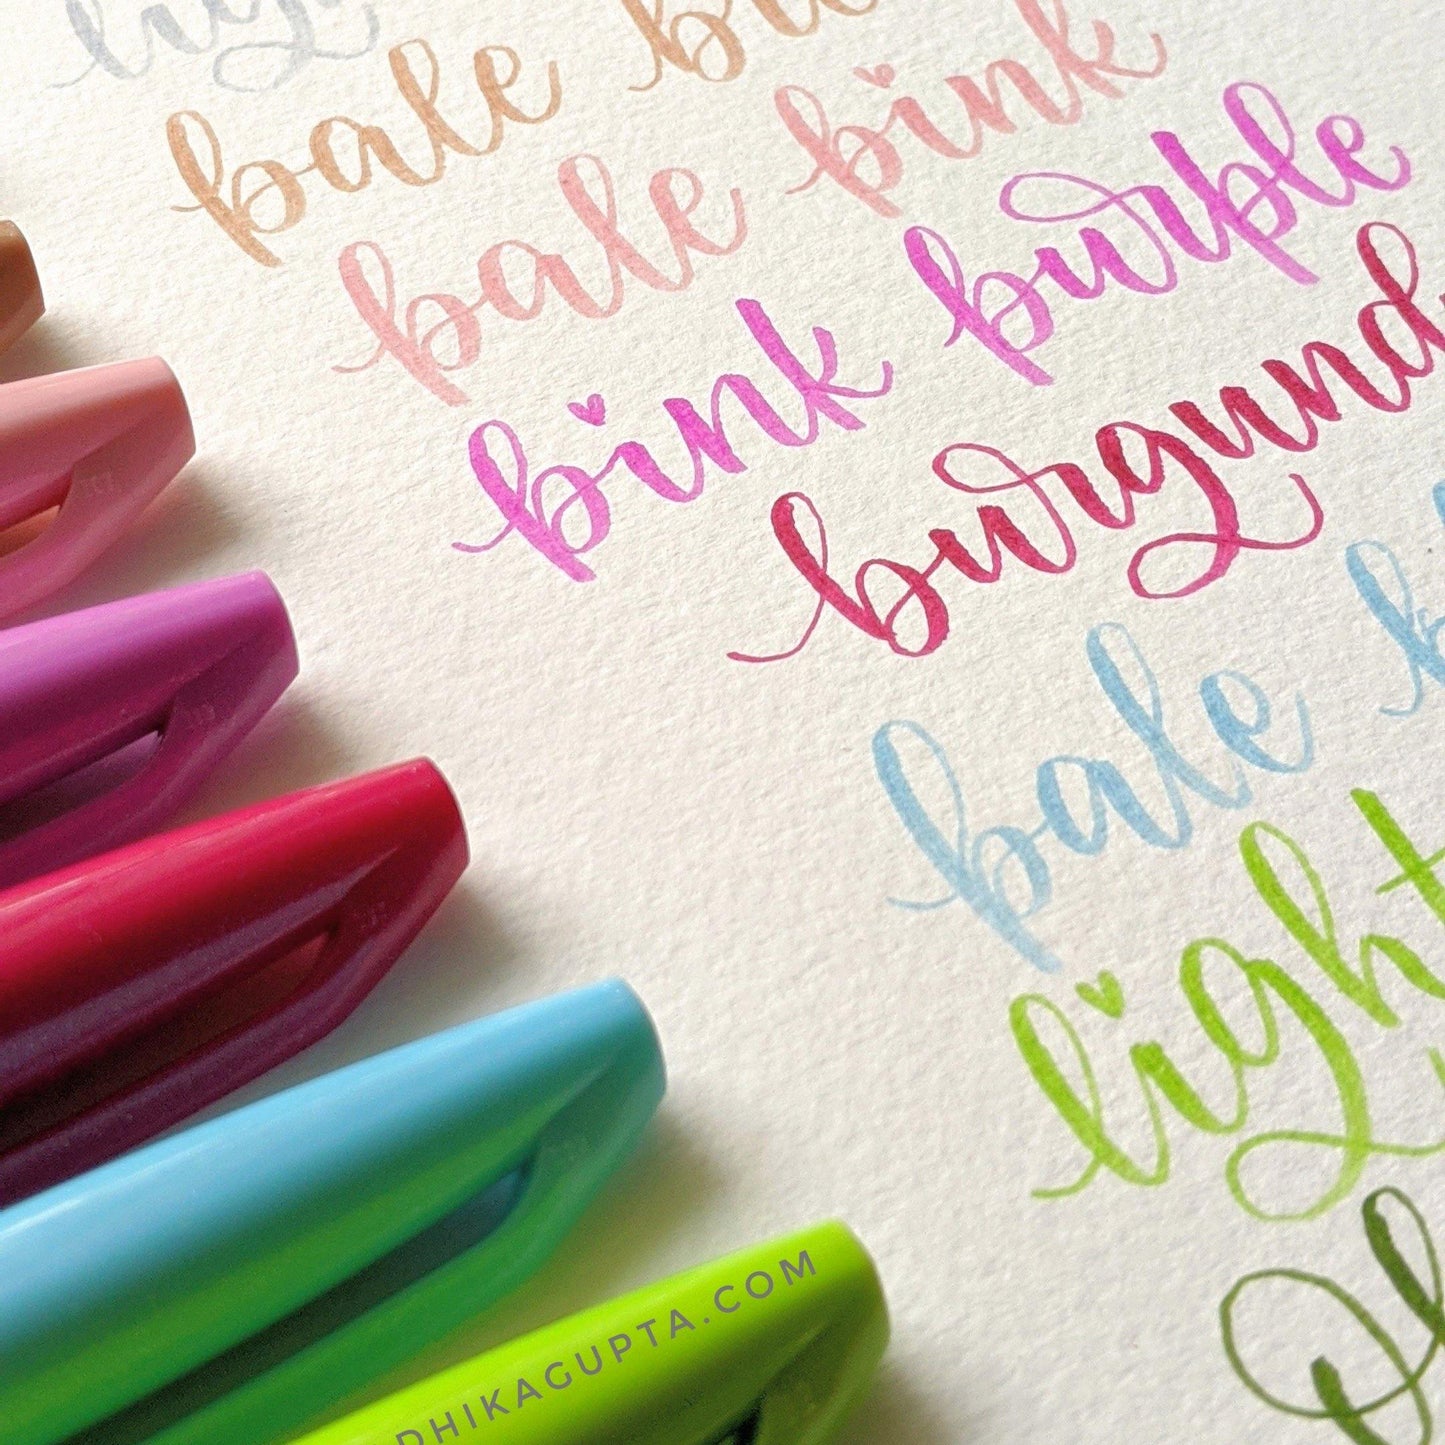 pale
pale pink
pink purple
burgund
pale
light
DHIKAGUPTA.COM